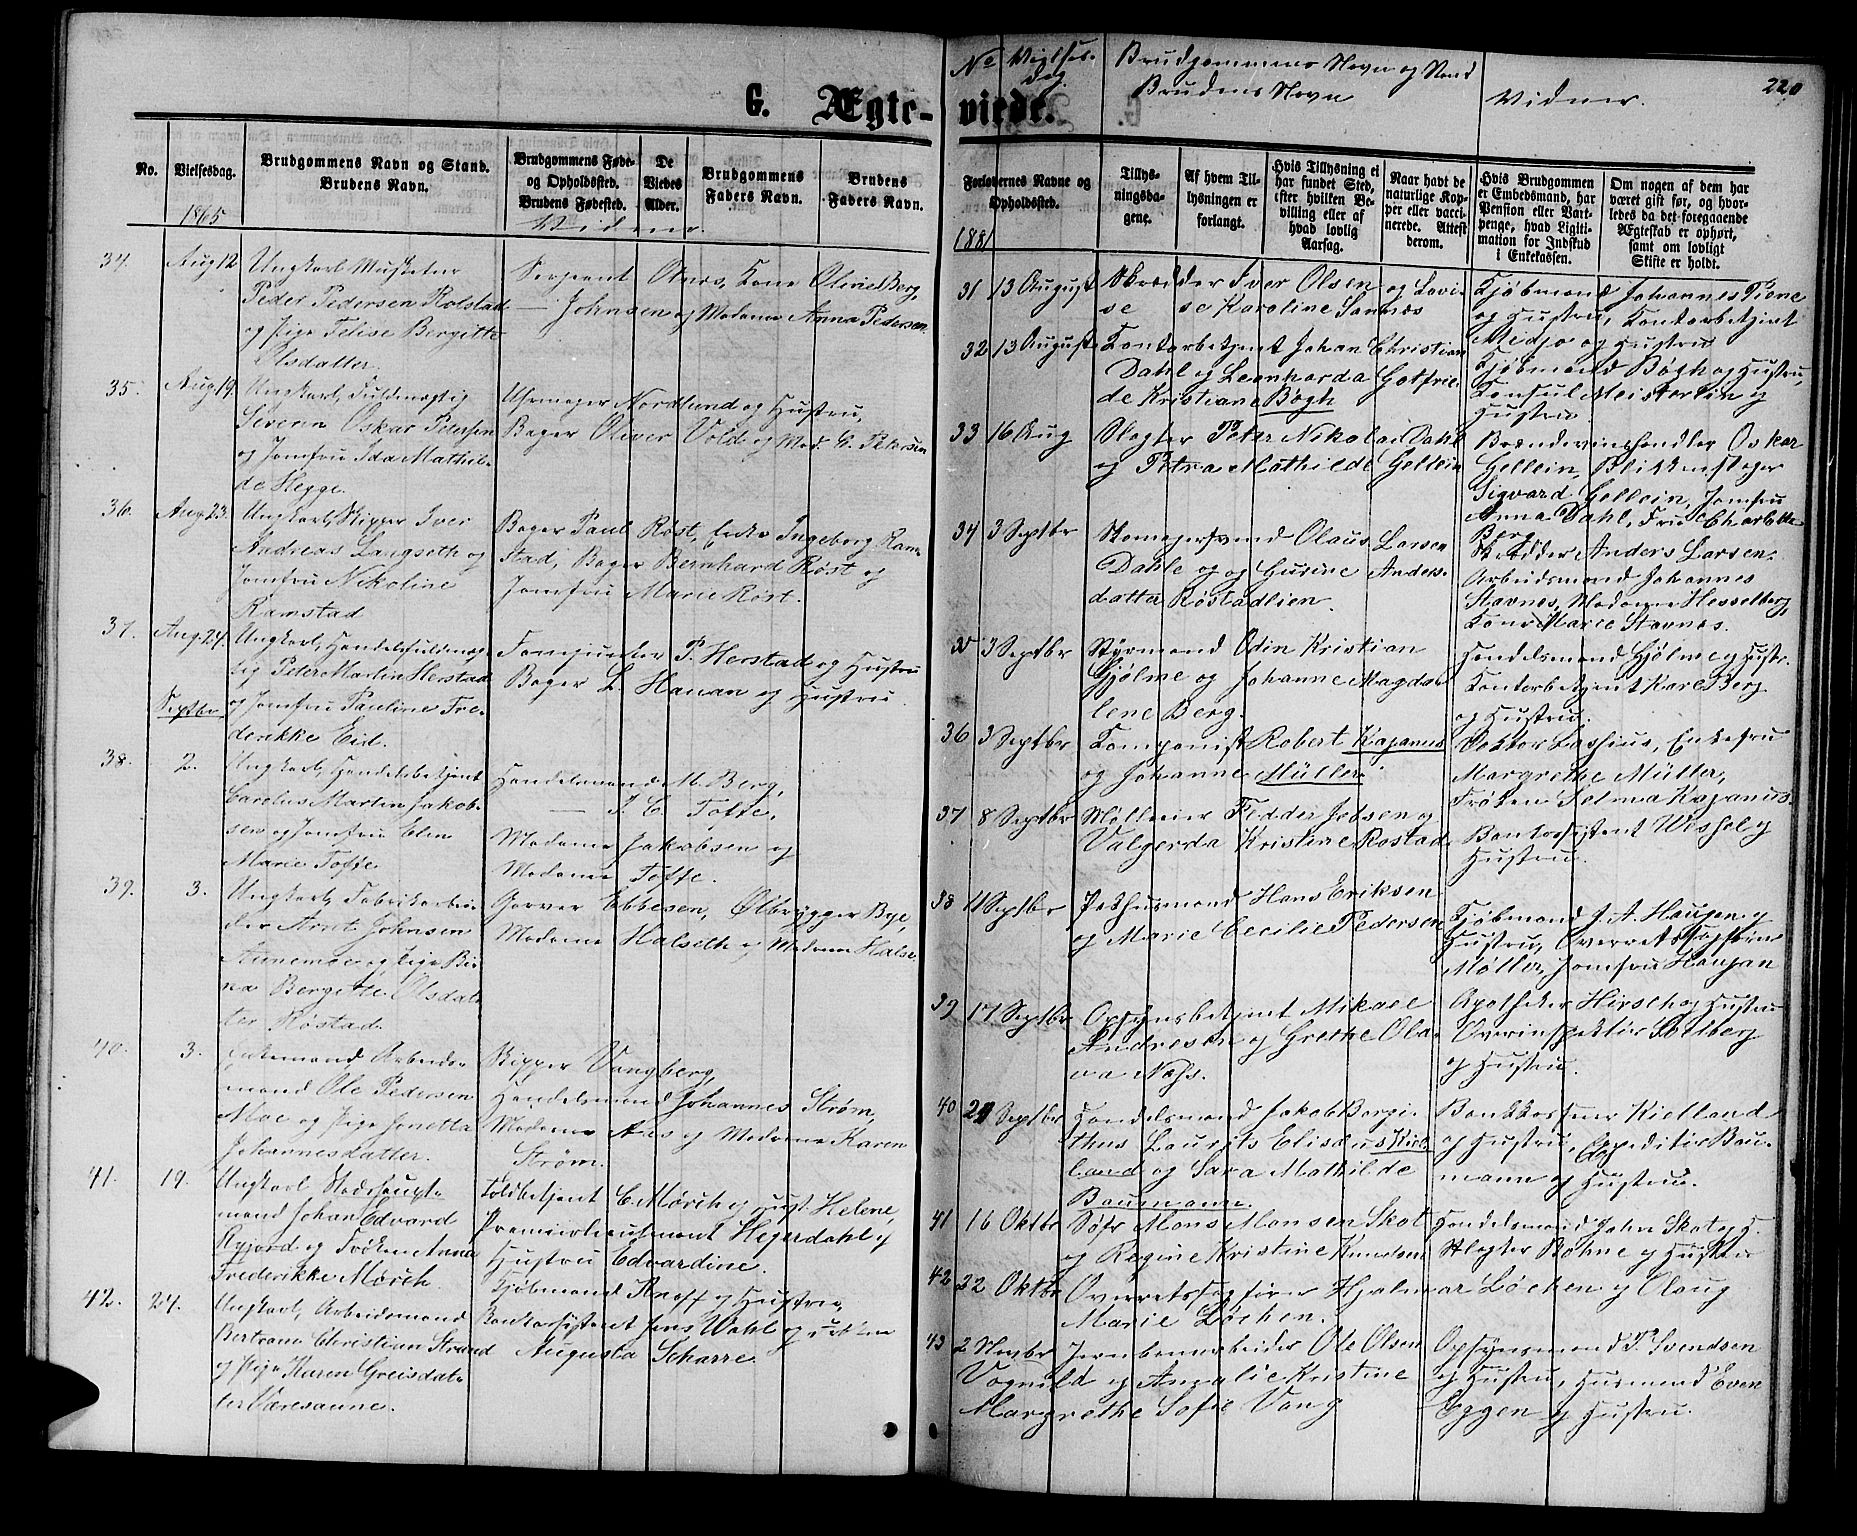 G. Ægte-
No.
Vielsesdag.
Brudgommens Navn og Stand.
Brudens Navn.
Brudgommens Føde-
og Opholdssted.
Brudens Fødested.
De
Viedes
Alder.
Brudgommens
Faders Navn.
Brudens
Faders Navn.
1865
Vidner.
34. Aug 12 Ungkarl Musketer
Peder Pedersen Rolstad
og Pige Felise Bergitte
Olsdatter.
Sergeant Aas, Kone Oline Berg,
— Johnsen og Madame Anna Pedersen
35. Aug 19. Ungkarl, Fuldmægtig
Severin Oskar Petersen
og Jomfru Ida Mathil-
de Hegge.
Uhrmager Nordlund og Hustru,
Bager Oliver Vold og Mad. G. Petersen
36. Aug. 23. Ungkarl, Skipper Iver
Andreas Langseth og
Jomfru Nikoline
Ramstad
Bager Paul Røst, Enke Ingeborg Ram-
stad, Bager Bernhard Røst og
Jomfru Marie Røst.
37. Aug. 24. Ungkarl, Handelsfuldmæg-
tig Peter Martin Herstad
og Jomfru Pauline Fre-
derikke Eid.
P. Herstad og Hustru
Bager L. Hanan og Hustru
Septbr
38. 2. Ungkarl, Handelsbetjent
Carolus Martin Jakob-
sen og Jomfru Elen
Marie Toffe
Handelsmand M. Berg,
— P. C. Toffe.
Madame Jakobsen og
Madame Toffe.
39. 3. Ungkarl, Fabrikarbei-
der Arnt Johnsen
og Pige Be-
Bergitte Olsdat-
ter Røstad.
Garver Ebbesen, Ølbrygger Bye,
Madame Halseth og Madame Halse
40. 3. Enkemand, Arbeids-
mand Ole Pedersen
Moe og Pige Jonetta
Johannesdatter.
Skipper Vangberg,
Handelsmand Johannes Strøm,
Madame Aas og Madame Karen
Strøm.
41. 19. Ungkarl Stadshaupt-
mand Johan Edvard
Ryjord og Frøken Anna
Frederikke Mørch.
Toldbetjent C. Mørch og Hust. Helene,
Premierlieutenant Hegerdahl og
Hustru Edvardine.
42. 24. Ungkarl, Arbeidsmand
Bertram Christian Strand
og Pige Karen Greisdat-
ter Væresaune.
Kjøbmand Knoff og Hustru,
Bankassistent Jens Wahl og
Augusta Scharre.
No
Vielses-
dag.
Brudgommens Navn og Stand
Brudens Navn
Vidner.
220
viede.
Forlovernes Navne og
Opholdssted.
Tillys-
ningsda-
gene.
Af hvem Til-
lysningen er
forlangt.
Hvis Tillysning ei
har fundet Sted,
efter hvilken Be-
villing eller af
hvad lovlig
Aarsag.
Naar havt de
naturlige Kop-
per eller vacci-
nerede. Attest
derom.
Hvis Brudgommen
er Embedsmand, har
Pension eller Vart-
penge, hvad Ligiti-
mation for Indskud
i Enkekassen.
Om nogen af dem har
været gift før, og hvor-
ledes da det foregaaende
Ægteskab er ophørt,
samt om lovligt
Skifte er holdt.
1881
31 13 August Skrædder Iver Olsen og Lovi-
se Karoline Sannæs
Kjøbmand Johannes Pione
og Hustru, Kontorbetjent
Midjo og Hustru
32 13 August Kontorbetjent Johan Christian
Dahl og Leonharda Gotfrie-
de Kristiane Bøgh
Kjøbmand Bøgh og Hustru,
Konsul Meisterlin og
Hustru
33 16 Aug Slagter Peter Nikolai Dahl
og Petra Mathilde Gellein
Brændevinshandler Oskar
Gellein, Blikkenslager
Sigvard Gellein, Jomfru
Anna Dahl, Fru Charlotte
Berg
34 3 Septbr Skomagersvend Olaus Larsen
Dahle og og Gurine Anders-
datter Røstadlien.
Skrædder Anders Larsen.
Arbeidsmand Johannes
Stavnes, Madame Hesselberg
Kone Marie Stavnes.
35 3 Septbr Styrmand Odin Kristian
Gjølme og Johanne Magda-
lene Berg.
Handelsmand Gjølme og Hustr.
Kontorbetjent Karl Berg
og Hustru.
36 3 Septbr Komponist Robert Kajanus
og Johanne Müller
Doktor Lassius, Enkefru
Margrethe Müller,
Frøken Selma Kajanus.
37 8 Septbr Mølleeier Fedder Jebsen og
Valgerda Kristine Rostad
Bankassistent Wessel og
Hustru.
38 11 Septbr Pakhusmand Hans Eriksen
og Marie Cecilie Pedersen
Kjøbmand J. A. Haugan og
Hustru, Overretssagfører
Møller, Jomfru Haugan
39 17 Septbr Opsynsbetjent Mikael
Andresen og Grethe Ola-
va Næss.
Apotheker Hirsch og Hustru
Overinspektør Solberg
og Hustru.
40 24 Septbr Handelsmand Jakob Bergi-
thus Laurits Elisæus Kiel-
land og Sara Mathilde
Baumann.
Bankkasserer Kielland
og Hustru, Expeditør Bau-
mann og Hustru.
41 16 Oktbr Søfr Mons Monsen Skot
og Regine Kristine Knudsen
Handelsmand John Skot og H.
Slagter Bohne og Hustru
42 22 Oktbr Overretssagfører Hjalmar Løchen og Olaug
Marie Løchen.
43 2 Novbr Jernbanearbeider Ole Olsen
Vognild og Angalie Kristine
Margrethe Sofie Vang
Opsynsmand P. Svendsen
og Hustru, Husmand Even
Eggen og Hustru.